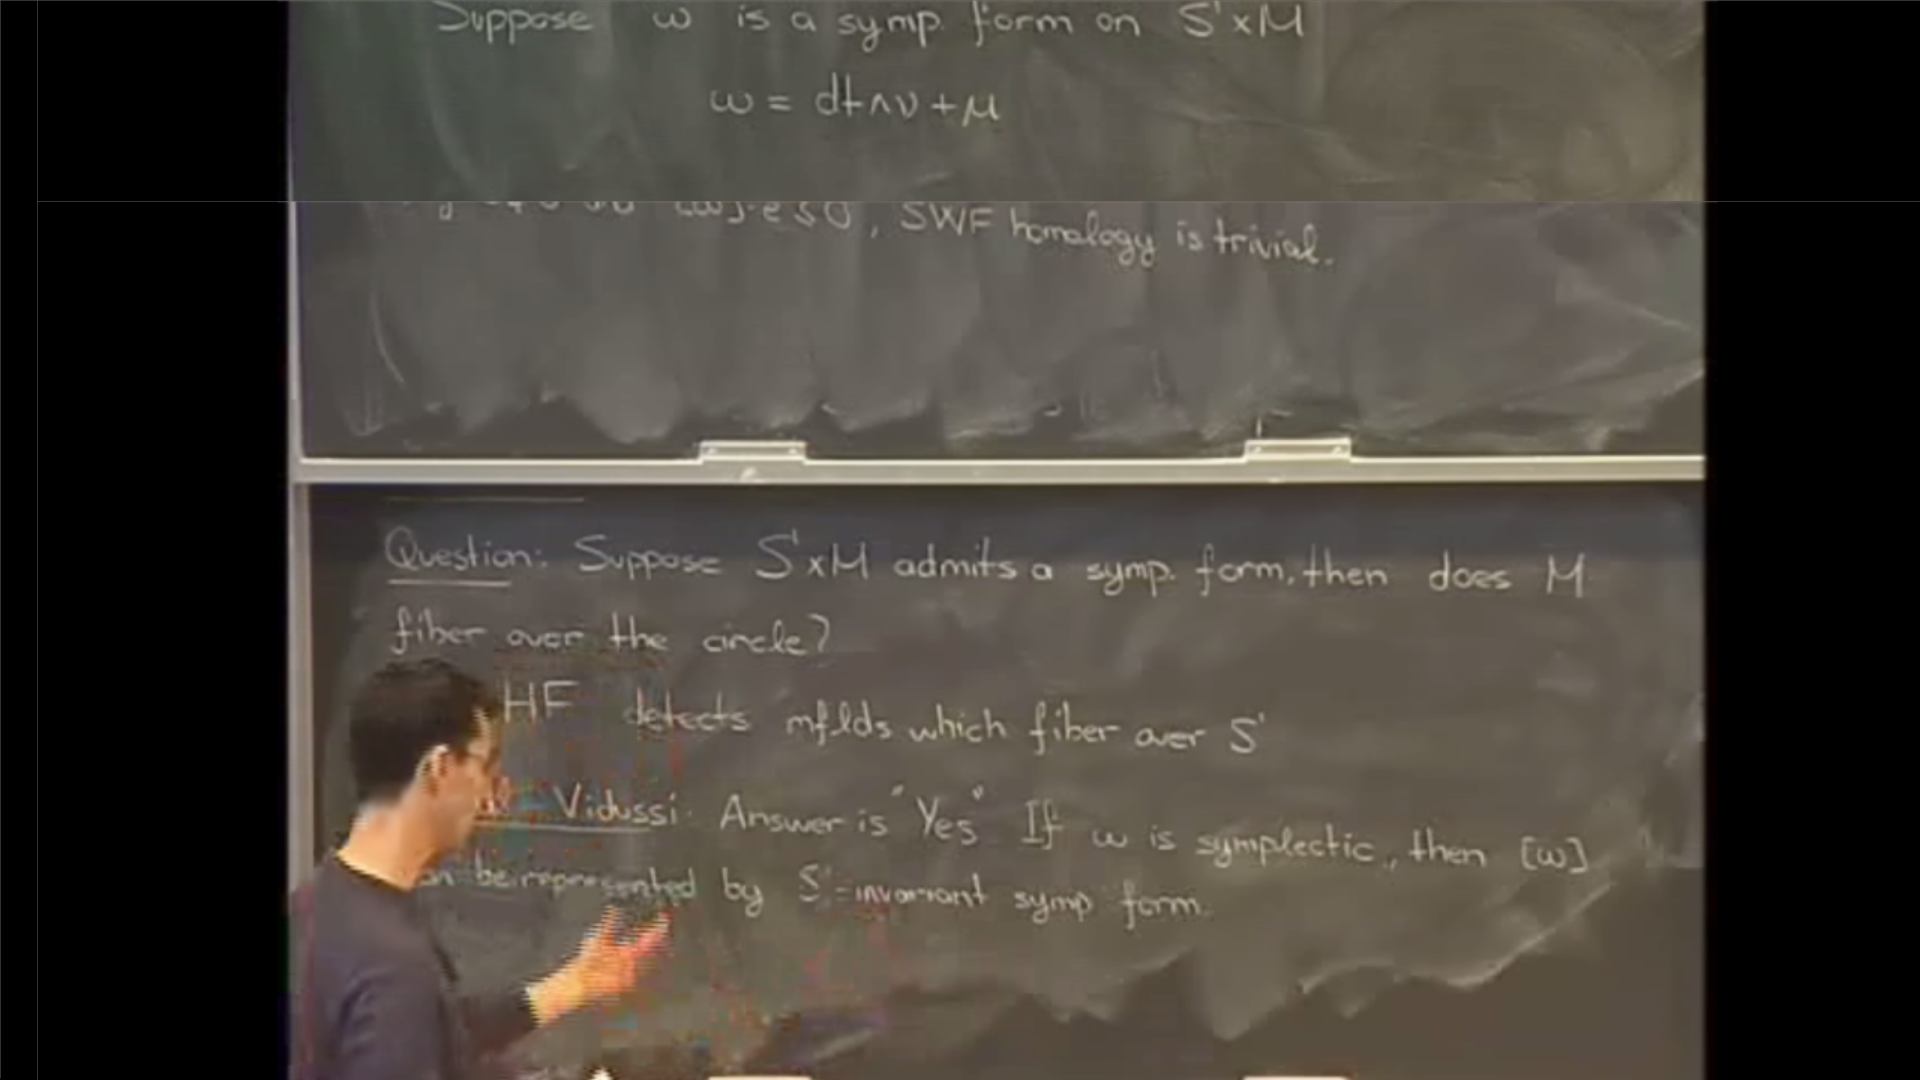 Suppose ω is a symp. form on S¹×M
ω = dt∧ν + μ
[ω]·e ≤ 0, SWF homology is trivial.
Question: Suppose S¹×M admits a symp. form, then does M
fiber over the circle?
HF detects mflds which fiber over S¹
Vidussi: Answer is "Yes" If ω is symplectic, then [ω]
be represented by S¹-invariant symp form.